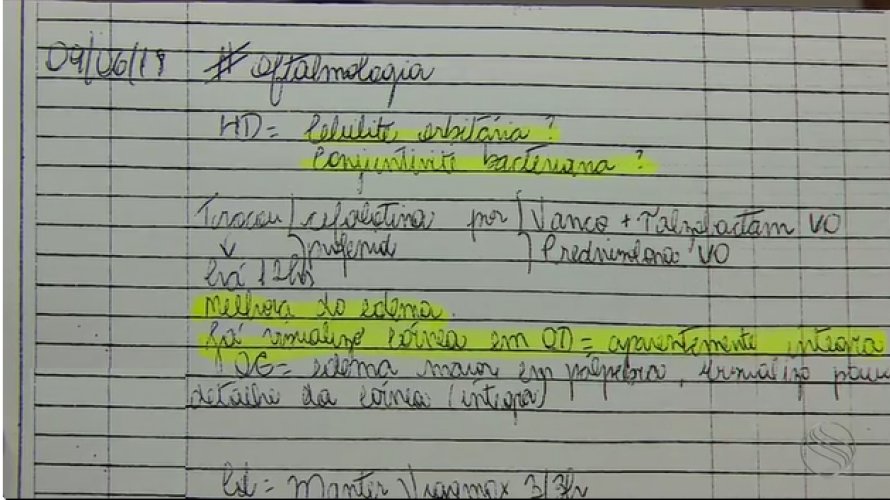 09/06/18 # oftalmologia
HD= Celulite orbitária?
Conjuntivite bacteriana?
Trocou cefalotina por Vanco + Tazobactam VO
profenid Prednisolona VO
há 12hs
Melhora do edema.
Já visualizo córnea em OD= aparentemente integra
OE= edema maior em pálpebra, visualizo pouco
detalhe da córnea (integra)
Cd= Manter Vigamox 3/3h